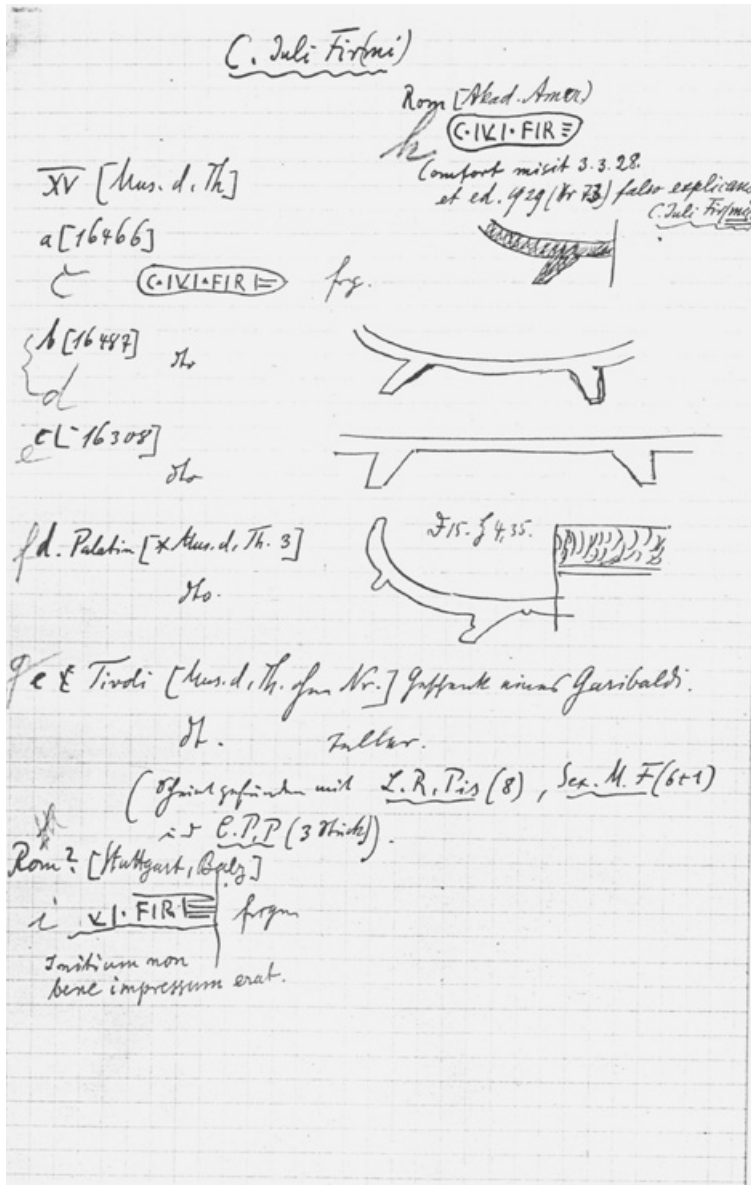 C. Juli Fir(mi)
Rom [Akad. Amer.)
h C·IVLI·FIRE
Comfort misit 3.3.28.
et ed. 1929 (Nr 73) falso explicans
C. Juli Fir(mi
XV [Mus. d. Th.]
a [16466]
C·IVLI·FIRE frg.
b [16487] dto
d
c [16308]
e
dto
f d. Palatin [Mus. d. Th. 3] F 15. 4,35.
dto.
e Tivoli [Mus. d. Th. ohne Nr.] Geschenk eines Garibaldi.
dt. Teller.
(Scheint gefunden mit L.R.Pis (8), Sex. M. F (6+1)
C.P.P (3 Stück)).
Rom? [Stuttgart, ]
i VLI·FIRE frgm
Initium non
bene impressum erat.